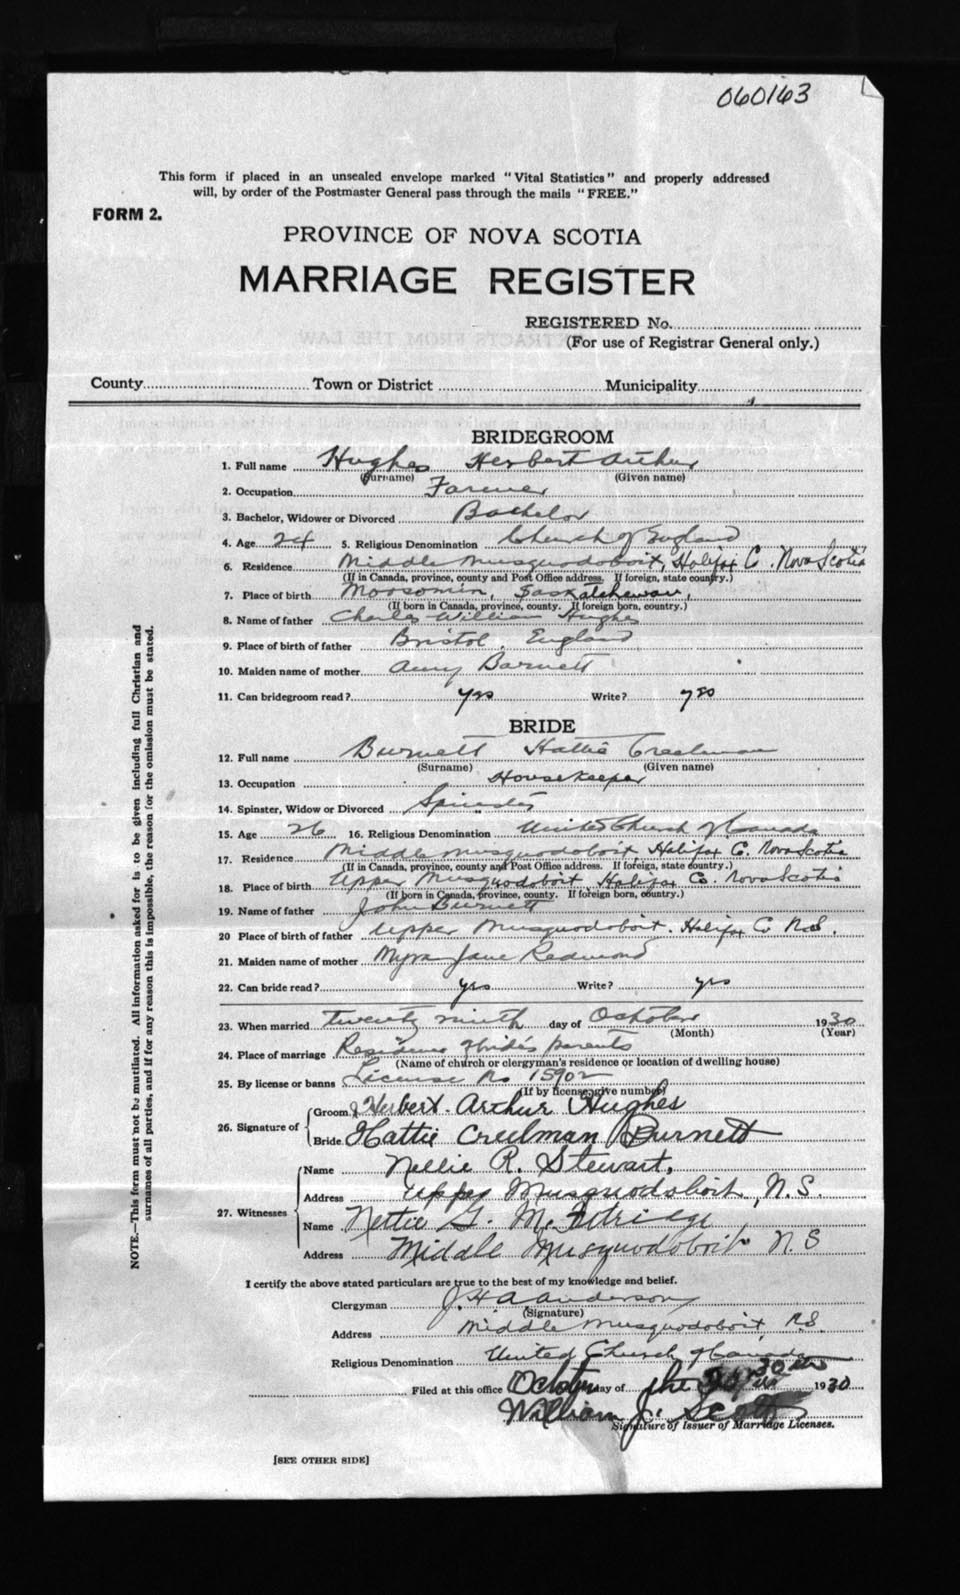 060163
This form if placed in an unsealed envelope marked "Vital Statistics" and properly addressed
will, by order of the Postmaster General pass through the mails "FREE."
FORM 2.
PROVINCE OF NOVA SCOTIA
MARRIAGE REGISTER
REGISTERED No.
(For use of Registrar General only.)
County Town or District Municipality
BRIDEGROOM
1. Full name Hughes Herbert Arthur
(Surname) (Given name)
2. Occupation Farmer
3. Bachelor, Widower or Divorced Bachelor
4. Age 24 5. Religious Denomination Church of England
6. Residence Middle Musquodoboit, Halifax C. Nova Scotia
(If in Canada, province, county and Post Office address. If foreign, state country.)
7. Place of birth Moosomin, Saskatchewan,
(If born in Canada, province, county. If foreign born, country.)
8. Name of father Charles William Hughes
9. Place of birth of father Bristol, England
10. Maiden name of mother Amy Barnett
11. Can bridegroom read? yes Write? yes
BRIDE
12. Full name Burnett Hattie Creelman
(Surname) (Given name)
13. Occupation Housekeeper
14. Spinster, Widow or Divorced Spinster
15. Age 26 16. Religious Denomination United Church of Canada
17. Residence Middle Musquodoboit, Halifax C. Nova Scotia
(If in Canada, province, county and Post Office address. If foreign, state country.)
18. Place of birth Upper Musquodoboit, Halifax C. Nova Scotia
(If born in Canada, province, county. If foreign born, country.)
19. Name of father John Burnett
20 Place of birth of father Upper Musquodoboit. Halifax C N.S.
21. Maiden name of mother Myra Jane Redmond
22. Can bride read? yes Write? yes
23. When married twenty ninth day of October 1930
(Month) (Year)
24. Place of marriage Residence of bride's parents
(Name of church or clergyman's residence or location of dwelling house)
25. By license or banns License No 15902
(If by license, give number)
26. Signature of Groom Herbert Arthur Hughes
Bride Hattie Creelman Burnett
27. Witnesses Name Nellie R. Stewart,
Address Upper Musquodoboit, N.S.
Name Nettie G.
Address Middle Musquodoboit N.S
I certify the above stated particulars are true to the best of my knowledge and belief.
Clergyman J. H A Anderson
(Signature)
Address Middle Musquodoboit, N.S.
Religious Denomination United Church of Canada
Filed at this office October day of the 30th 1930
William J. Scott
Signature of Issuer of Marriage Licenses.
[SEE OTHER SIDE]
NOTE.—This form must not be mutilated. All information asked for is to be given including full Christian and
surnames of all parties, and if for any reason this is impossible, the reason for the omission must be stated.